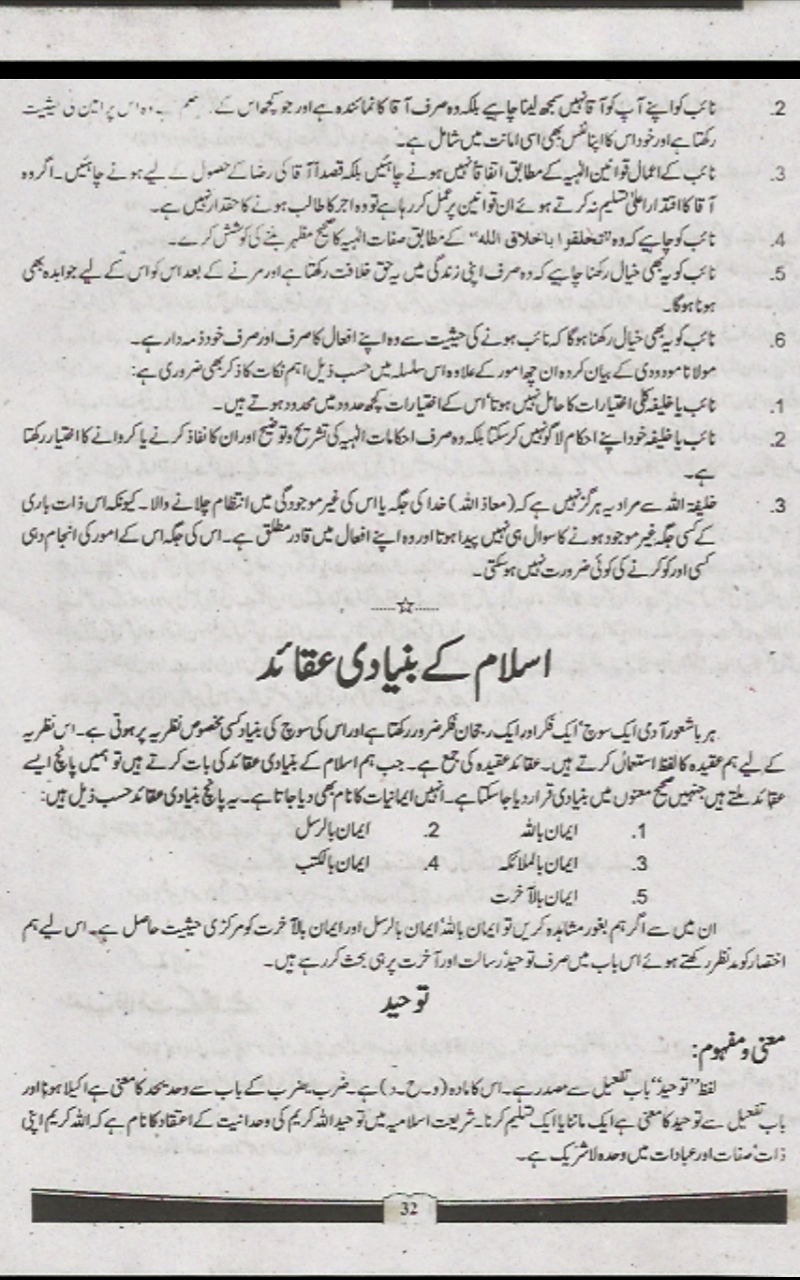 2. نائب کو اپنے آپ کو آقا نہیں سمجھ لینا چاہیے بلکہ وہ صرف آقا کا نمائندہ ہے اور جو کچھ اس کے وہ اس پر امین کی حیثیت
رکھتا ہے اور خود اس کا اپنا نفس بھی اسی امانت میں شامل ہے۔
3. نائب کے اعمال قوانین الٰہیہ کے مطابق اتفاقاً نہیں ہونے چاہئیں بلکہ قصداً آقا کی رضا کے حصول کے لیے ہونے چاہئیں۔ اگر وہ
آقا کا اقتدار اعلیٰ تسلیم نہ کرتے ہوئے ان قوانین پر عمل کر رہا ہے تو وہ اجر کا طالب ہونے کا حقدار نہیں ہے۔
4. نائب کو چاہیے کہ وہ ”تخلقوا باخلاق الله“ کے مطابق صفات الٰہیہ کا صحیح مظہر بننے کی کوشش کرے۔
5. نائب کو یہ بھی خیال رکھنا چاہیے کہ وہ صرف اپنی زندگی میں یہ حق خلافت رکھتا ہے اور مرنے کے بعد اس کو اس کے لیے جوابدہ بھی
ہونا ہوگا۔
6. نائب کو یہ بھی خیال رکھنا ہوگا کہ نائب ہونے کی حیثیت سے وہ اپنے افعال کا صرف اور صرف خود ذمہ دار ہے۔
مولانا مودودی کے بیان کردہ ان چھ امور کے علاوہ اس سلسلہ میں حسب ذیل اہم نکات کا ذکر بھی ضروری ہے:
1. نائب یا خلیفہ کلی اختیارات کا حامل نہیں ہوتا‘ اس کے اختیارات کچھ حدود میں محدود ہوتے ہیں۔
2. نائب یا خلیفہ خود اپنے احکام لاگو نہیں کر سکتا بلکہ وہ صرف احکامات الٰہیہ کی تشریح و توضیح اور ان کا نفاذ کرنے یا کروانے کا اختیار رکھتا
ہے۔
3. خلیفۃ اللہ سے مراد یہ ہرگز نہیں ہے کہ (معاذ اللہ) خدا کی جگہ یا اس کی غیر موجودگی میں انتظام چلانے والا۔ کیونکہ اس ذات باری
کے کسی جگہ غیر موجود ہونے کا سوال ہی نہیں پیدا ہوتا اور وہ اپنے افعال میں قادر مطلق ہے۔ اس کی جگہ اس کے امور کی انجام دہی
کسی اور کو کرنے کی کوئی ضرورت نہیں ہو سکتی۔
......☆......
اسلام کے بنیادی عقائد
ہر باشعور آدمی ایک سوچ‘ ایک فکر اور ایک رجحان فکر ضرور رکھتا ہے اور اس کی سوچ کی بنیاد کسی مخصوص نظریہ پر ہوتی ہے۔ اس نظریہ
کے لیے ہم عقیدہ کا لفظ استعمال کرتے ہیں۔ عقائد عقیدہ کی جمع ہے۔ جب ہم اسلام کے بنیادی عقائد کی بات کرتے ہیں تو ہمیں پانچ ایسے
عقائد ملتے ہیں جنہیں صحیح معنوں میں بنیادی قرار دیا جا سکتا ہے۔ انہیں ایمانیات کا نام بھی دیا جاتا ہے۔ یہ پانچ بنیادی عقائد حسب ذیل ہیں:
1. ایمان باللہ 2. ایمان بالرسل
3. ایمان بالملائکہ 4. ایمان بالکتب
5. ایمان بالآخرت
ان میں سے اگر ہم بغور مشاہدہ کریں تو ایمان باللہ‘ ایمان بالرسل اور ایمان بالآخرت کو مرکزی حیثیت حاصل ہے۔ اس لیے ہم
اختصار کو مدنظر رکھتے ہوئے اس باب میں صرف توحید‘ رسالت اور آخرت پر ہی بحث کر رہے ہیں۔
توحید
معنی و مفہوم:
لفظ ”توحید“ باب تفعیل سے مصدر ہے۔ اس کا مادہ (و۔ح۔د) ہے۔ ضرب یضرب کے باب سے وحد یحد کا معنی ہے اکیلا ہونا اور
باب تفعیل سے توحید کا معنی ہے ایک ماننا یا ایک تسلیم کرنا۔ شریعت اسلامیہ میں توحید اللہ کریم کی وحدانیت کے اعتقاد کا نام ہے کہ اللہ کریم اپنی
ذات‘ صفات اور عبادات میں وحدہ لاشریک ہے۔
32